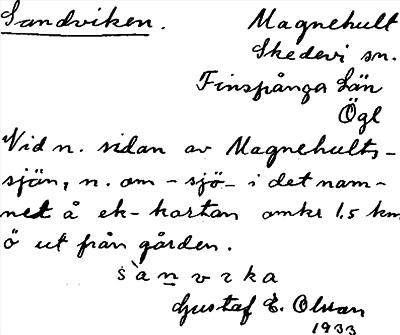 Sandviken. Magnehult
Skedevi sn.
Finspånga Län
Ögl
Vid n. sidan av Magnehults-
sjön, n. om - sjö - i det nam-
net å ek-kartan omkr 1,5 km
ö ut från gården.
sànvika
Gustaf E. Olsson
1933